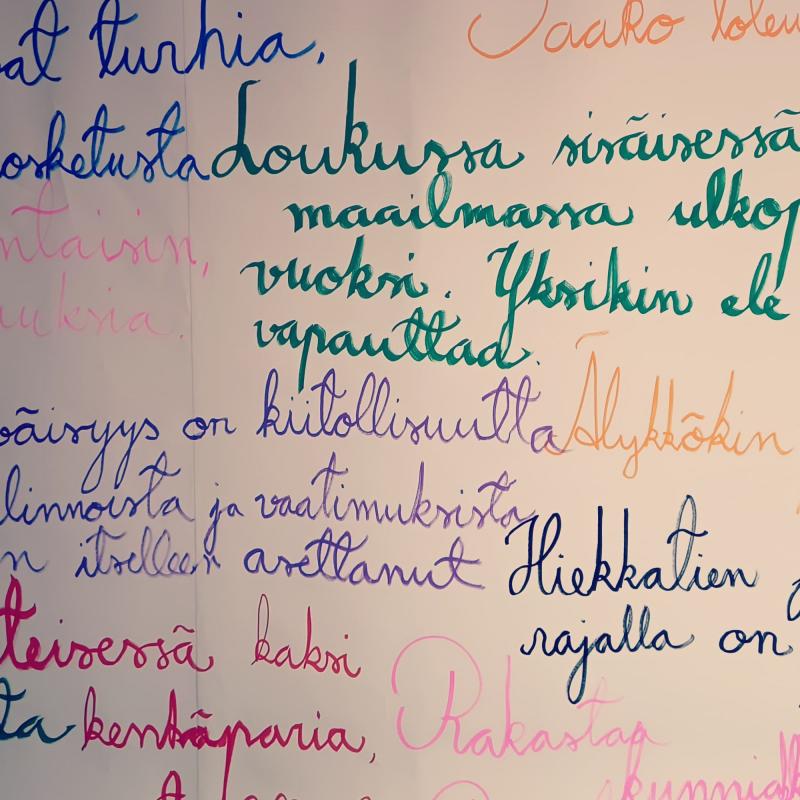 at turhia,
osketusta
ntaisin,
uksia.
Jaako
Loukussa sisäisessä
maailmassa ulkop
vuoksi. Yksikin ele
vapauttaa.
päisyys on kiitollisuutta
linnoista ja vaatimuksista
n itselleen asettanut
Älykkökin
Hiekkatien
rajalla on
teisessä kaksi
ta kenkäparia,
Rakastaa
kunnia